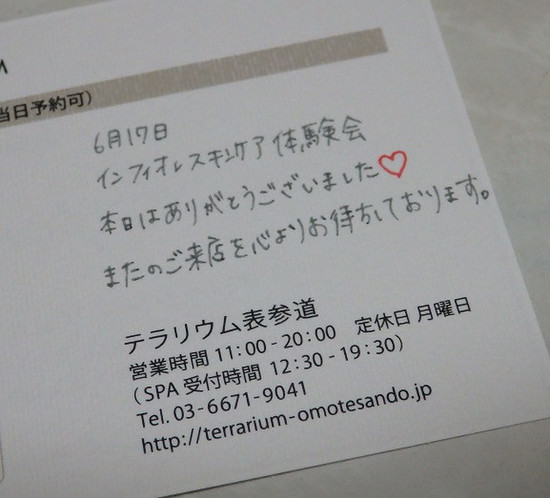 当日予約可）
6月17日
インフィオレスキンケア体験会
本日はありがとうございました♡
またのご来店を心よりお待ちしております。
テラリウム表参道
営業時間 11:00 - 20:00　定休日 月曜日
（SPA 受付時間 12:30 - 19:30）
Tel. 03-6671-9041
http://terrarium-omotesando.jp